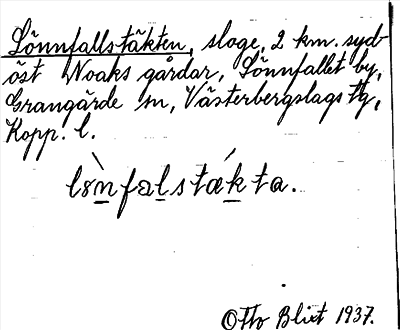 Lönnfallstäkten, sloge, 2 km. syd-
öst Noaks gårdar, Lönnfallet by,
Grangärde sn, Västerbergslags tg,
Kopp. l.
lònfalstǽkta.
Otto Blixt 1937.